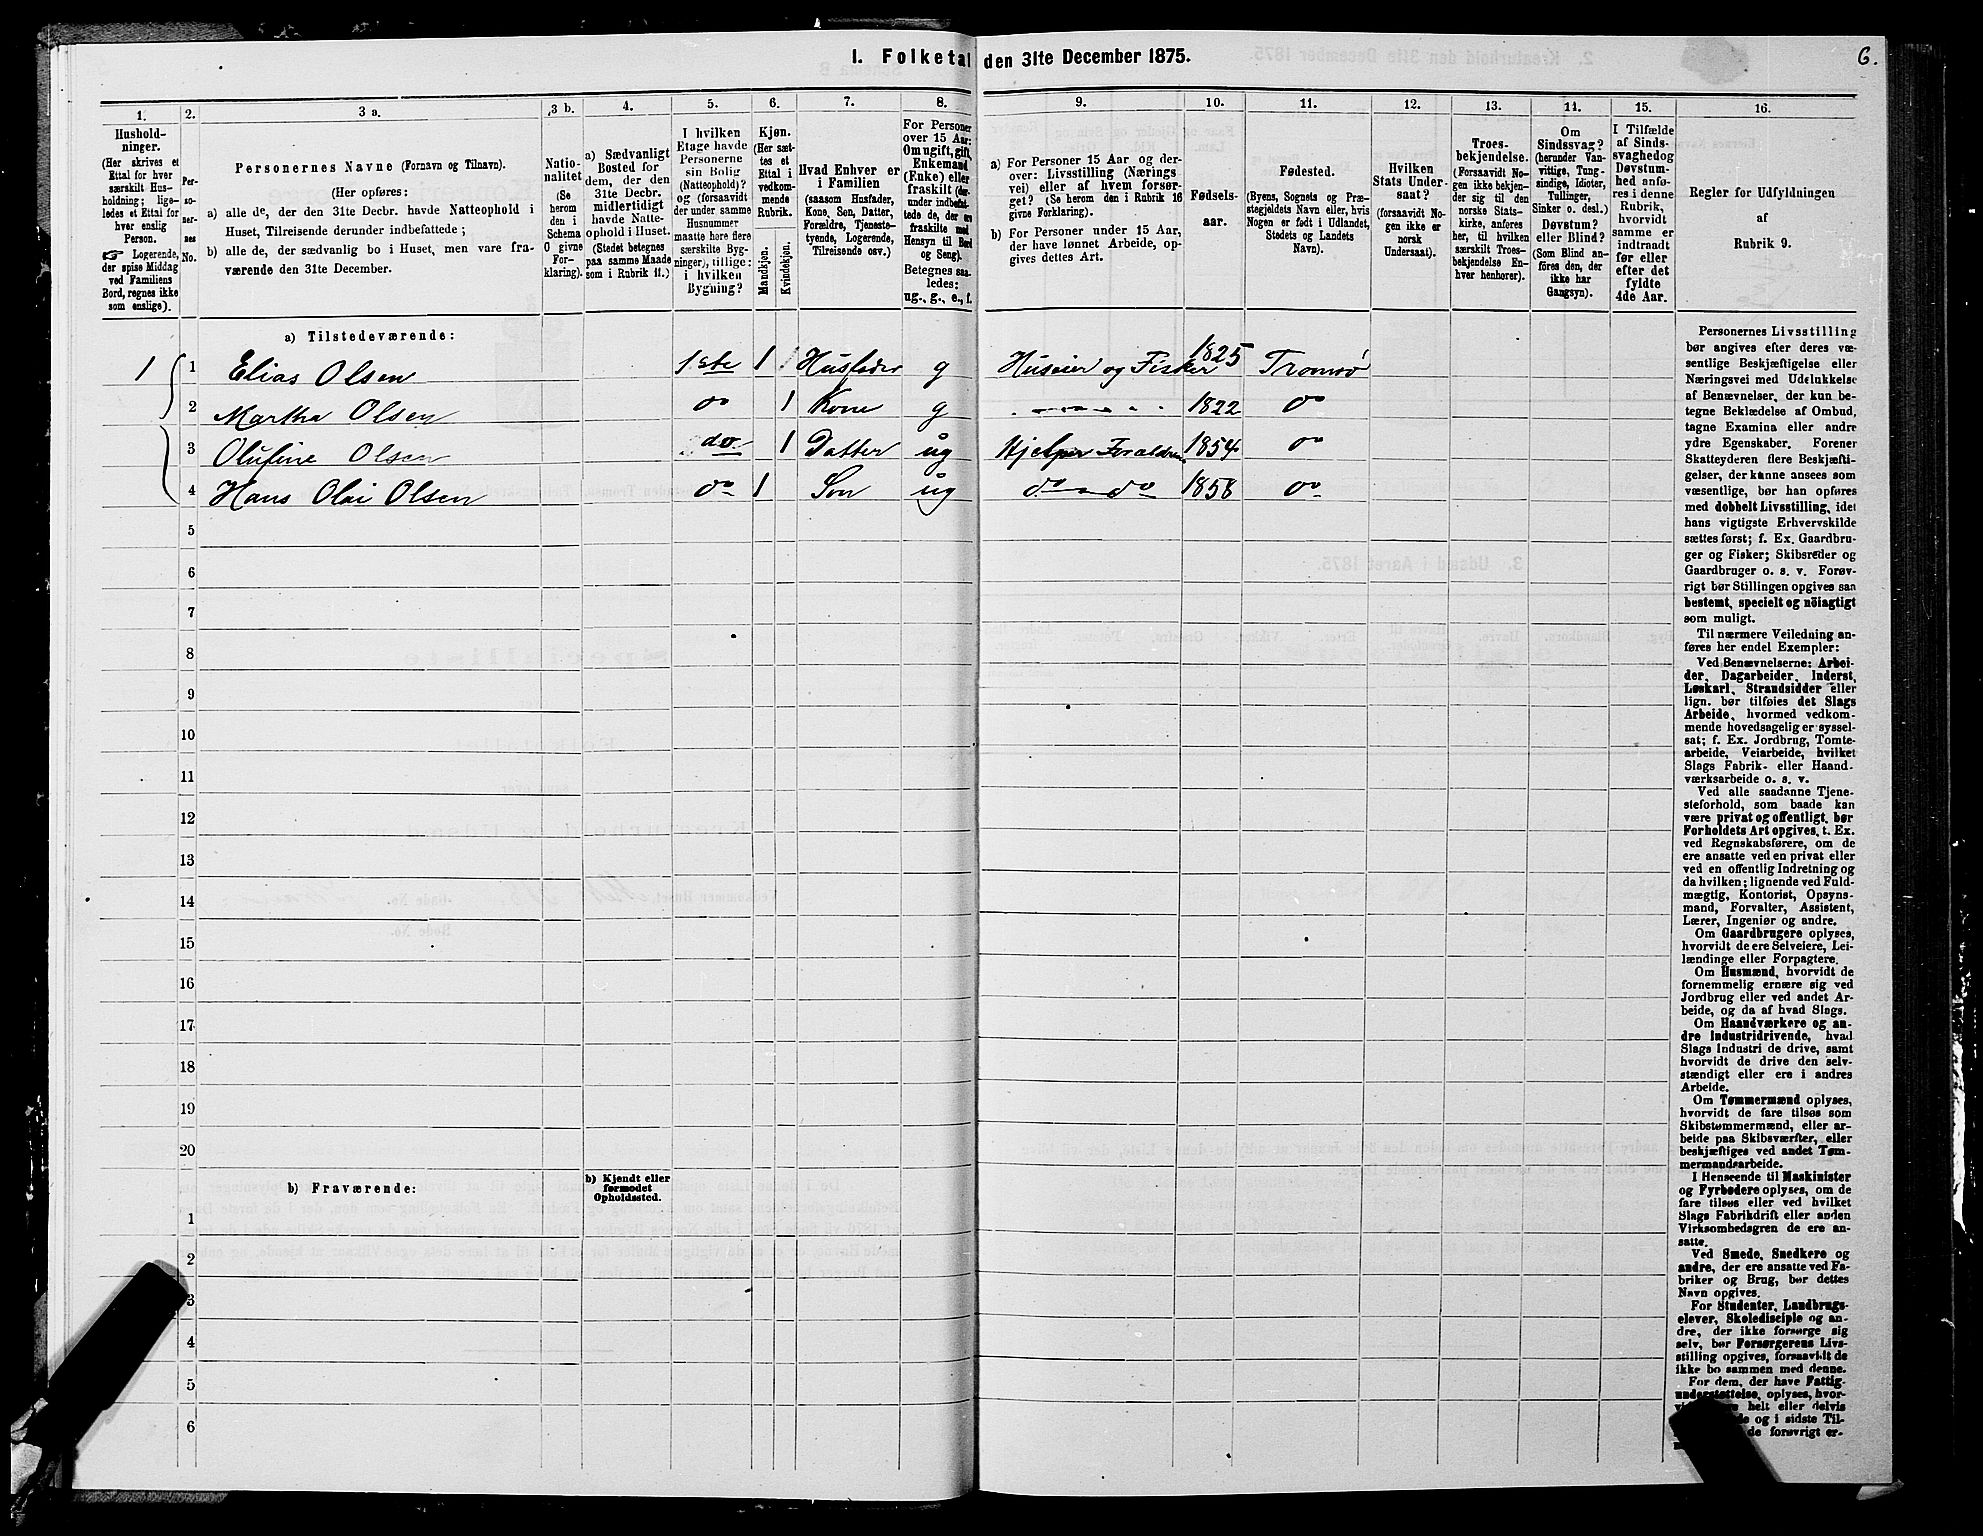 I. Folketal den 31te December 1875.
6.
1.
Hushold-
ninger.
(Her skrives et
Ettal for hver
særskilt Hus-
holdning; lige-
ledes et Ettal for
hver enslig
Person.
☞ Logerende,
der spise Middag
ved Familiens
Bord, regnes ikke
som enslige).
2.
Per-
so-
ner-
nes
No.
3 a.
Personernes Navne (Fornavn og Tilnavn).
(Her opføres:
a) alle de, der den 31te Decbr. havde Natteophold i
Huset, Tilreisende derunder indbefattede;
b) alle de, der sædvanlig bo i Huset, men vare fra-
værende den 31te December.
3 b.
Natio-
nalitet
(Se
herom
den i
Schema
O givne
For-
klaring).
4.
a) Sædvanligt
Bosted for
dem, der den
31te Decbr.
midlertidigt
havde Natte-
ophold i Huset.
(Stedet betegnes
paa samme Maade
som i Rubrik 11.)
5.
I hvilken
Etage havde
Personerne
sin Bolig
(Natteophold)?
og (forsaavidt
der under samme
Husnummer
maatte høre flere
særskilte Byg-
ninger), tillige:
i hvilken
Bygning?
6.
Kjøn.
(Her sæt-
tes et
Ettal i
vedkom-
mende
Rubrik.
Mandkjøn.
Kvindekjøn.
7.
Hvad Enhver er
i Familien
(saasom Husfader,
Kone, Søn, Datter,
Forældre, Tjeneste-
tyende, Logerende,
Tilreisende osv.)
8.
For Personer
over 15 Aar:
Om ugift, gift,
Enkemand
(Enke) eller
fraskilt (der-
under indbefat-
tede de, der ere
fraskilte med
Hensyn til Bord
og Seng).
Betegnes saa-
ledes:
ug., g., e., f.
9.
a) For Personer 15 Aar og der-
over: Livsstilling (Nærings
vei) eller af hvem forsør-
get? (Se herom den i Rubrik 16
givne Forklaring).
b) For Personer under 15 Aar,
der have lønnet Arbeide, op-
gives dettes Art.
10.
Fødsels-
aar.
11.
Fødested.
(Byens, Sognets og Præ-
stegjeldets Navn eller, hvis
Nogen er født i Udlandet,
Stedets og Landets
Navn).
12.
Hvilken
Stats Under-
saat?
(forsaavidt No-
gen ikke er
norsk
Undersaat).
13.
Troes-
bekjendelse.
(Forsaavidt No-
gen ikke bekjen-
der sig til den
norske Stats-
kirke, anføres
her, til hvilken
særskilt Troes-
bekjendelse En-
hver henhorer).
14.
Om
Sindssvag?
(herunder Van-
vittige, Tung-
sindige, Idioter,
Tullinger,
Sinker o. desl.)
Døvstum?
eller Blind?
(Som Blind an-
føres den, der
ikke har
Gangsyn).
15.
I Tilfælde
af Sinds-
svaghedog
Døvstum-
hed anfø-
res i denne
Rubrik,
hvorvidt
samme er
indtraadt
før eller
efter det
fyldte
4de Aar.
16.
Regler for Udfyldningen
af
Rubrik 9.
a) Tilstedeværende:
1 1 Elias Olsen 1ste 1 Husfader g Huseier og Fisker 1825 Tromsø
2 Martha Olsen do 1 Kone g 1822 do
3 Olufine Olsen do 1 Datter ug Hjelper Foraldren 1854 do
4 Hans Olai Olsen do 1 Søn ug do do 1858 do
5
6
7
8
9
10
11
12
13
14
15
16
17
18
19
20
b) Fraværende:
b) Kjendt eller
formodet
Opholdssted.
1
2
3
4
5
6
Personernes Livsstilling
bør angives efter deres væ-
sentlige Beskjæftigelse eller
Næringsvei med Udelukkelse
af Benævnelser, der kun be-
tegne Beklædelse af Ombud,
tagne Examina eller andre
ydre Egenskaber. Forener
Skatteyderen flere Beskjæfti-
gelser, der kanne ansees som
væsentlige, bør han opføres
med dobbelt Livsstilling, idet
hans vigtigste Erhvervskilde
sættes først; f. Ex. Gaardbru-
ger og Fisker; Skibsreder og
Gaardbruger o. s. v. Forøv-
rigt bør Stillingen opgives saa
bestemt, specielt og nöiagtigt
som muligt.
Til nærmere Veiledning an-
føres her endel Exempler:
Ved Benævnelserne: Arbei-
der, Dagarbeider, Inderst,
Løskarl, Strandsidder eller
lign. bør tilføies det Slags
Arbeide, hvormed vedkom-
mende hovedsagelig er syssel-
sat; f. Ex. Jordbrug, Tomte-
arbeide, Veiarbeide, hvilket
Slags Fabrik- eller Haand-
værksarbeide o. s. v.
Ved alle saadanne Tjene-
steforhold, som baade kan
være privat og offentligt, bør
Forholdets Art opgives, t. Ex.
ved Regnskabsførere, om de
ere ansatte ved en privat eller
ved en offentlig Indretning og
da hvilken; lignende ved Fuld-
mægtig, Kontorist, Opsyns-
mand, Forvalter, Assistent,
Lærer, Ingeniør og andre.
Om Gaardbrugere oplyses,
hvorvidt de ere Selveiere, Lei-
lændinge eller Forpagtere.
Om Husmænd, hvorvidt de
fornemmelig ernære sig ved
Jordbrug eller ved andet Ar-
beide, og da af hvad Slags.
Om Haandværkere og an-
dre Industridrivende, hvad
Slags Industri de drive, samt
hvorvidt de drive den selv-
stændigt eller ere i andres
Arbeide.
Om Tømmermænd oplyses,
hvorvidt de fare tilsøs som
Skibstømmermænd, eller ar-
beide paa Skibsværfter, eller
beskjæftiges ved andet Tøm-
mermandsarbeide.
I Henseende til Maskinister
og Fyrbødere oplyses, om de
fare tilsøs eller ved hvilket
Slags Fabrikdrift eller anden
Virksombedsgren de ere an-
satte.
Ved Smede, Snedkere og
andre, der ere ansatte ved Fa-
briker og Brug, bør dettes
Navn opgives.
For Studenter, Landbrugs-
elever, Skoledisciple og an-
dre, der ikke forsørge sig
selv, bør Forsørgerens Livs-
stilling opgives, forsaavidt de
ikke bo sammen med denne.
For dem, der have Fattig-
understøttelse, oplyses, hvor-
helt eller delvis
og i sidste Til-
de forøvrigt er-